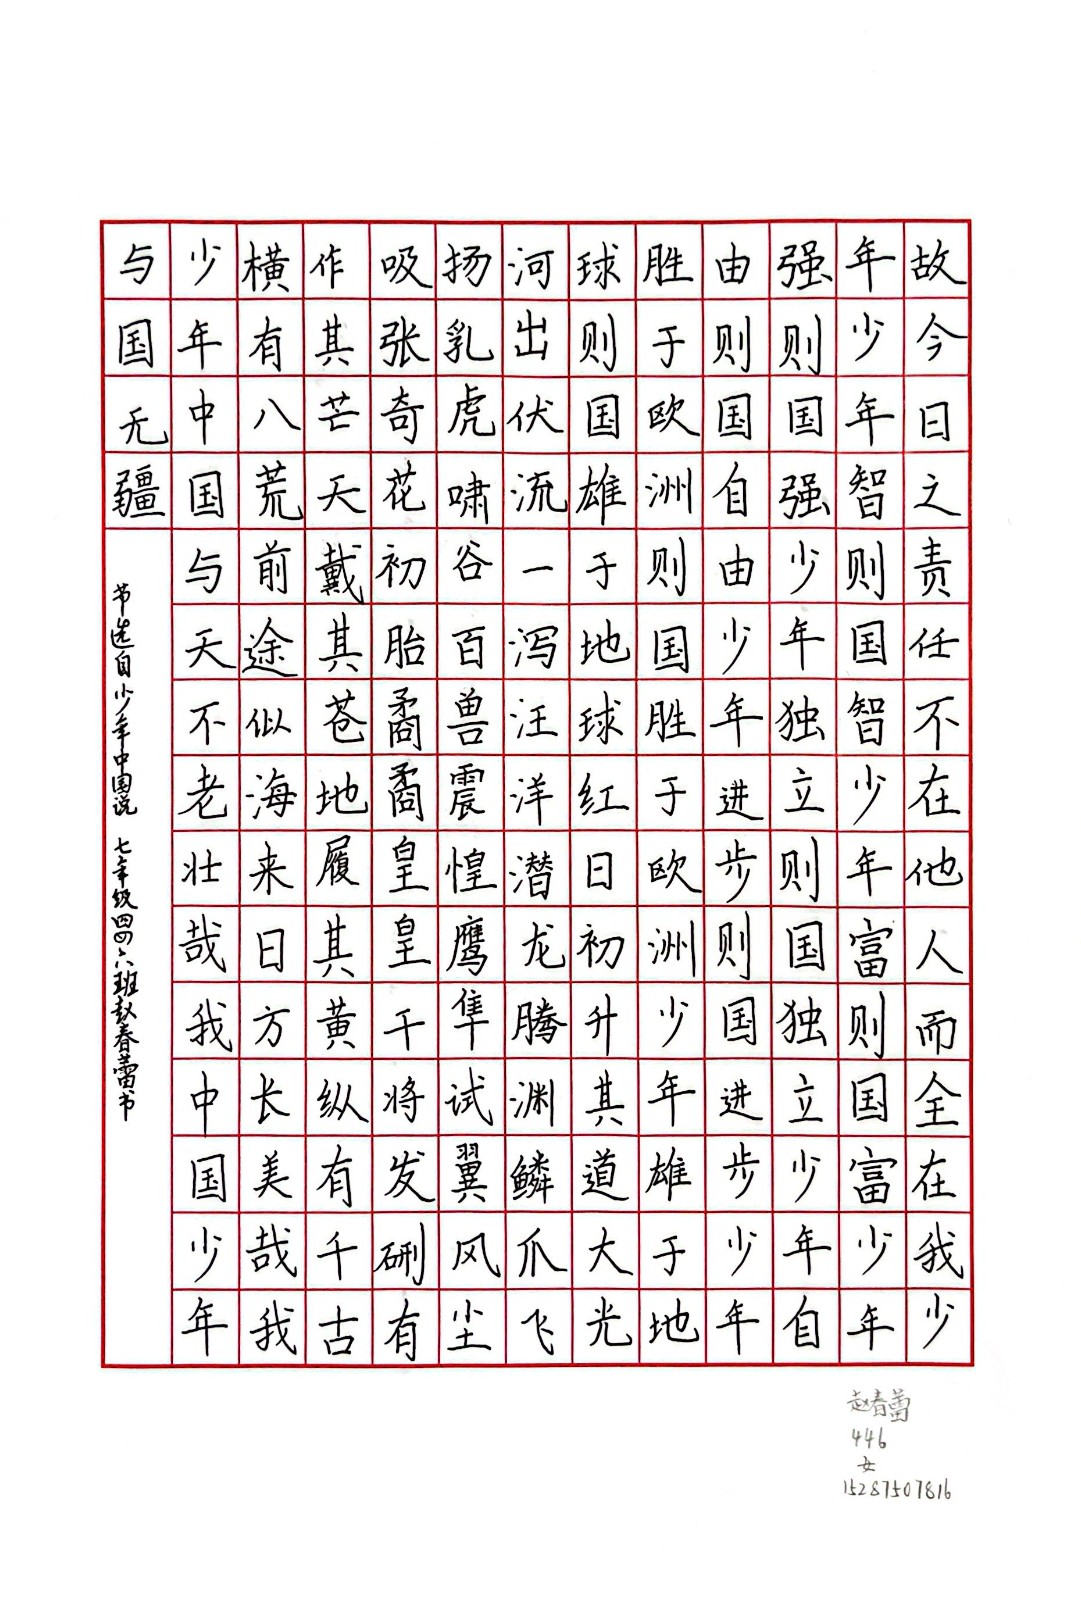 故今日之责任不在他人而全在我少
年少年智则国智少年富则国富少年
强则国强少年独立则国独立少年自
由则国自由少年进步则国进步少年
胜于欧洲则国胜于欧洲少年雄于地
球则国雄于地球红日初升其道大光
河出伏流一泻汪洋潜龙腾渊鳞爪飞
扬乳虎啸谷百兽震惶鹰隼试翼风尘
吸张奇花初胎矞矞皇皇干将发硎有
作其芒天戴其苍地履其黄纵有千古
横有八荒前途似海来日方长美哉我
少年中国与天不老壮哉我中国少年
与国无疆
节选自少年中国说 七年级四四六班赵春蕾书
赵春蕾
446
女
15287507816